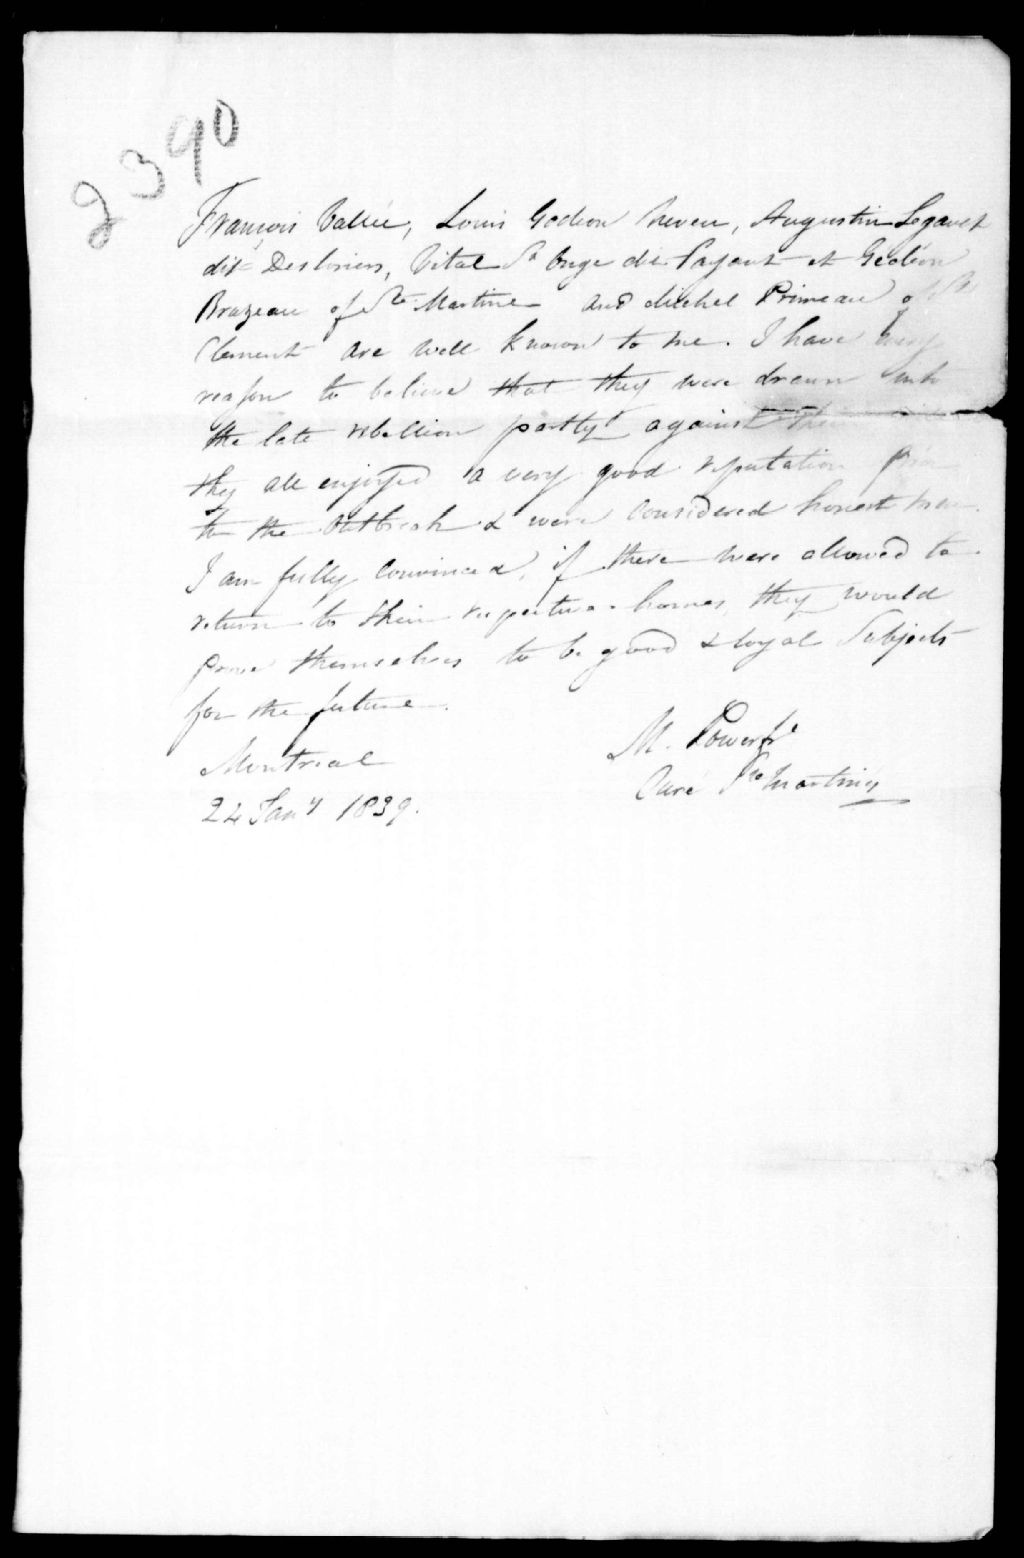 2390
François Vallée, Louis Gedeon Neveu, Augustin Legault
dit Deslorier, Vital St Onge dit Payant et Gédéon
Brazeau of Ste Martine and Michel Primeau of St
Clement are well known to me. I have every
reason to believe that they were drawn into
the late rebellion partly against their
they all enjoyed a very good reputation prior
to the outbreak & were considered honest men.
I am fully convinced, if there were allowed to
return to their respective homes, they would
prove themselves to be good & loyal Subjects
for the future.
M. Power Pre
Montreal
Curé Ste Martine
24 Jany 1839.